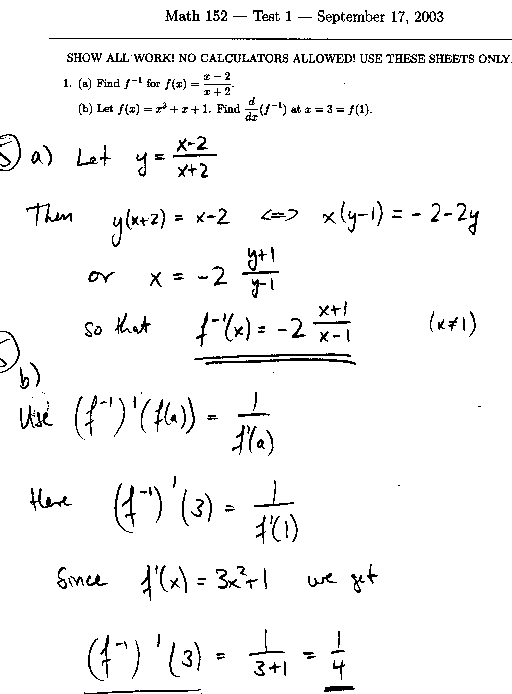 Math 152 — Test 1 — September 17, 2003
SHOW ALL WORK! NO CALCULATORS ALLOWED! USE THESE SHEETS ONLY.
1. (a) Find f⁻¹ for f(x) = (x − 2)/(x + 2).
(b) Let f(x) = x³ + x + 1. Find d/dx (f⁻¹) at x = 3 = f(1).
5
a) Let y = (x-2)/(x+2)
Then y(x+2) = x-2 <=> x(y-1) = -2-2y
or x = -2 (y+1)/(y-1)
so that f⁻¹(x) = -2 (x+1)/(x-1) (x≠1)
5
b)
Use (f⁻¹)'(f(a)) = 1/f'(a)
Here (f⁻¹)'(3) = 1/f'(1)
Since f'(x) = 3x²+1 we get
(f⁻¹)'(3) = 1/(3+1) = 1/4